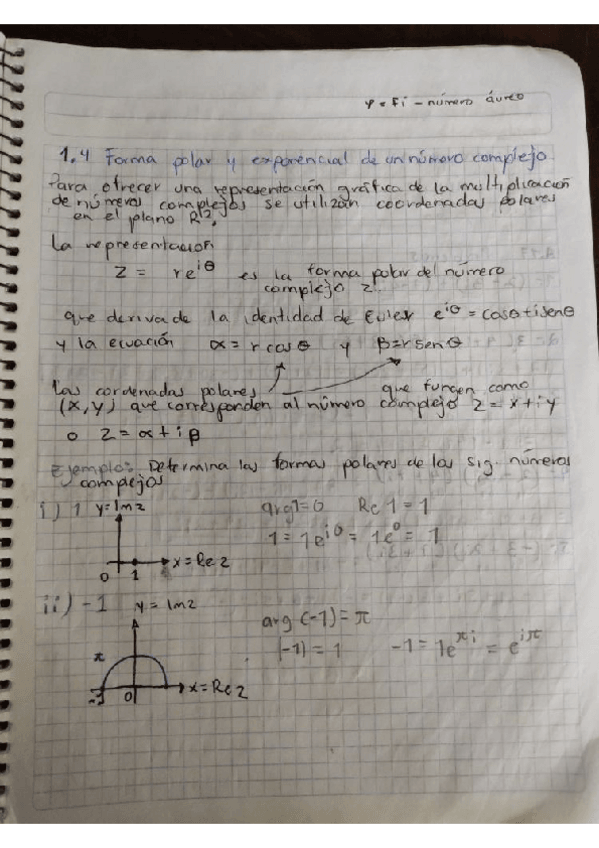 φ = fi - número áureo
1.4 Forma polar y exponencial de un número complejo
Para ofrecer una representación gráfica de la multiplicación
de números complejos se utilizan coordenadas polares
en el plano R².
La representación
z = re^{iθ} es la forma polar del número
complejo z.
que deriva de la identidad de Euler e^{iθ} = cosθ + i senθ
y la ecuación α = r cos θ y β = r sen θ
Las cordenadas polares que fungen como
(x, y) que corresponden al número complejo z = x + iy
o z = α + iβ
Ejemplo: Determina las formas polares de los sig. números
complejos
i) 1 y = Im z arg 1 = 0 Re 1 = 1
1 = 1e^{i0} = 1e^0 = 1
x = Re z
0 1
ii) -1 y = Im z
arg (-1) = π
|-1) = 1 -1 = 1e^{πi} = e^{iπ}
π
x = Re z
-1 0